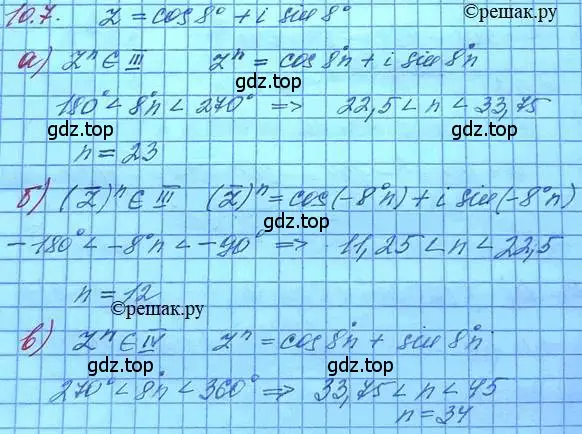 10.7. z = cos 8° + i sin 8° ©reшак.ру
а) zⁿ ∈ III zⁿ = cos 8°n + i sin 8°n
gdz.top
180° < 8°n < 270° ⇒ 22,5 < n < 33,75
gdz.top gdz.top
n = 23
gdz.top
б) (z̄)ⁿ ∈ III (z̄)ⁿ = cos(-8°n) + i sin(-8°n)
gdz.top gdz.top
-180° < -8°n < -90° ⇒ 11,25 < n < 22,5
n = 12
©reшак.ру
в) zⁿ ∈ IV zⁿ = cos 8°n + sin 8°n
gdz.top gdz.top
270° < 8°n < 360° ⇒ 33,75 < n < 45
n = 34